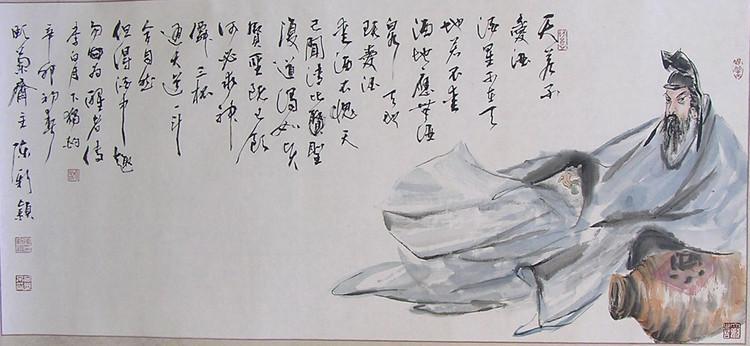 天若不
愛酒
酒星不在天
地若不愛
酒地應無酒
泉天地
既愛酒
愛酒不愧天
已聞清比聖
復道濁如賢
賢聖既已飲
何必求神
僊三杯
通大道一斗
合自然
但得酒中趣
勿為醒者傳
李白月下獨酌
辛卯初
菊齋主陳穎